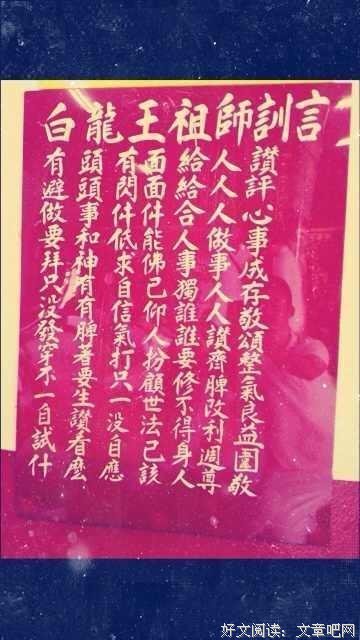 白龍王祖師訓言
有頭有面給人讚
避頭閃面給人評
做事件件合人心
要和低能人做事
拜神求佛事事成
只有自己獨人存
沒有信仰誰人敬
發脾氣人誰讚頌
穿者打扮要齊整
不要只顧修脾氣
一生一世不改良
自讚沒法得利益
試看自己身週圍
什麼應該人尊敬
好文阅读：文章吧网